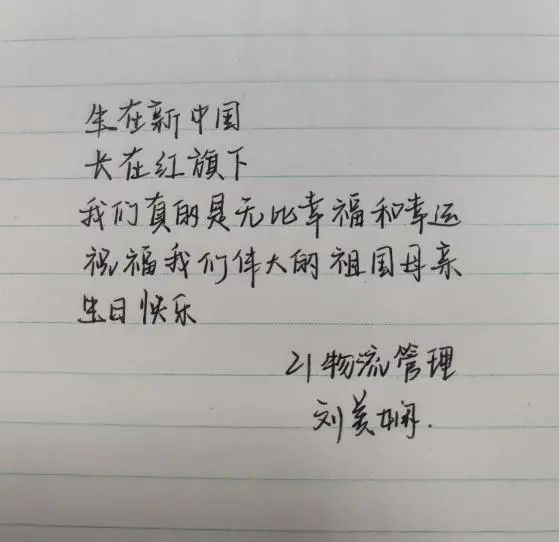 生在新中国
长在红旗下
我们真的是无比幸福和幸运
祝福我们伟大的祖国母亲
生日快乐
21物流管理
刘美娴.